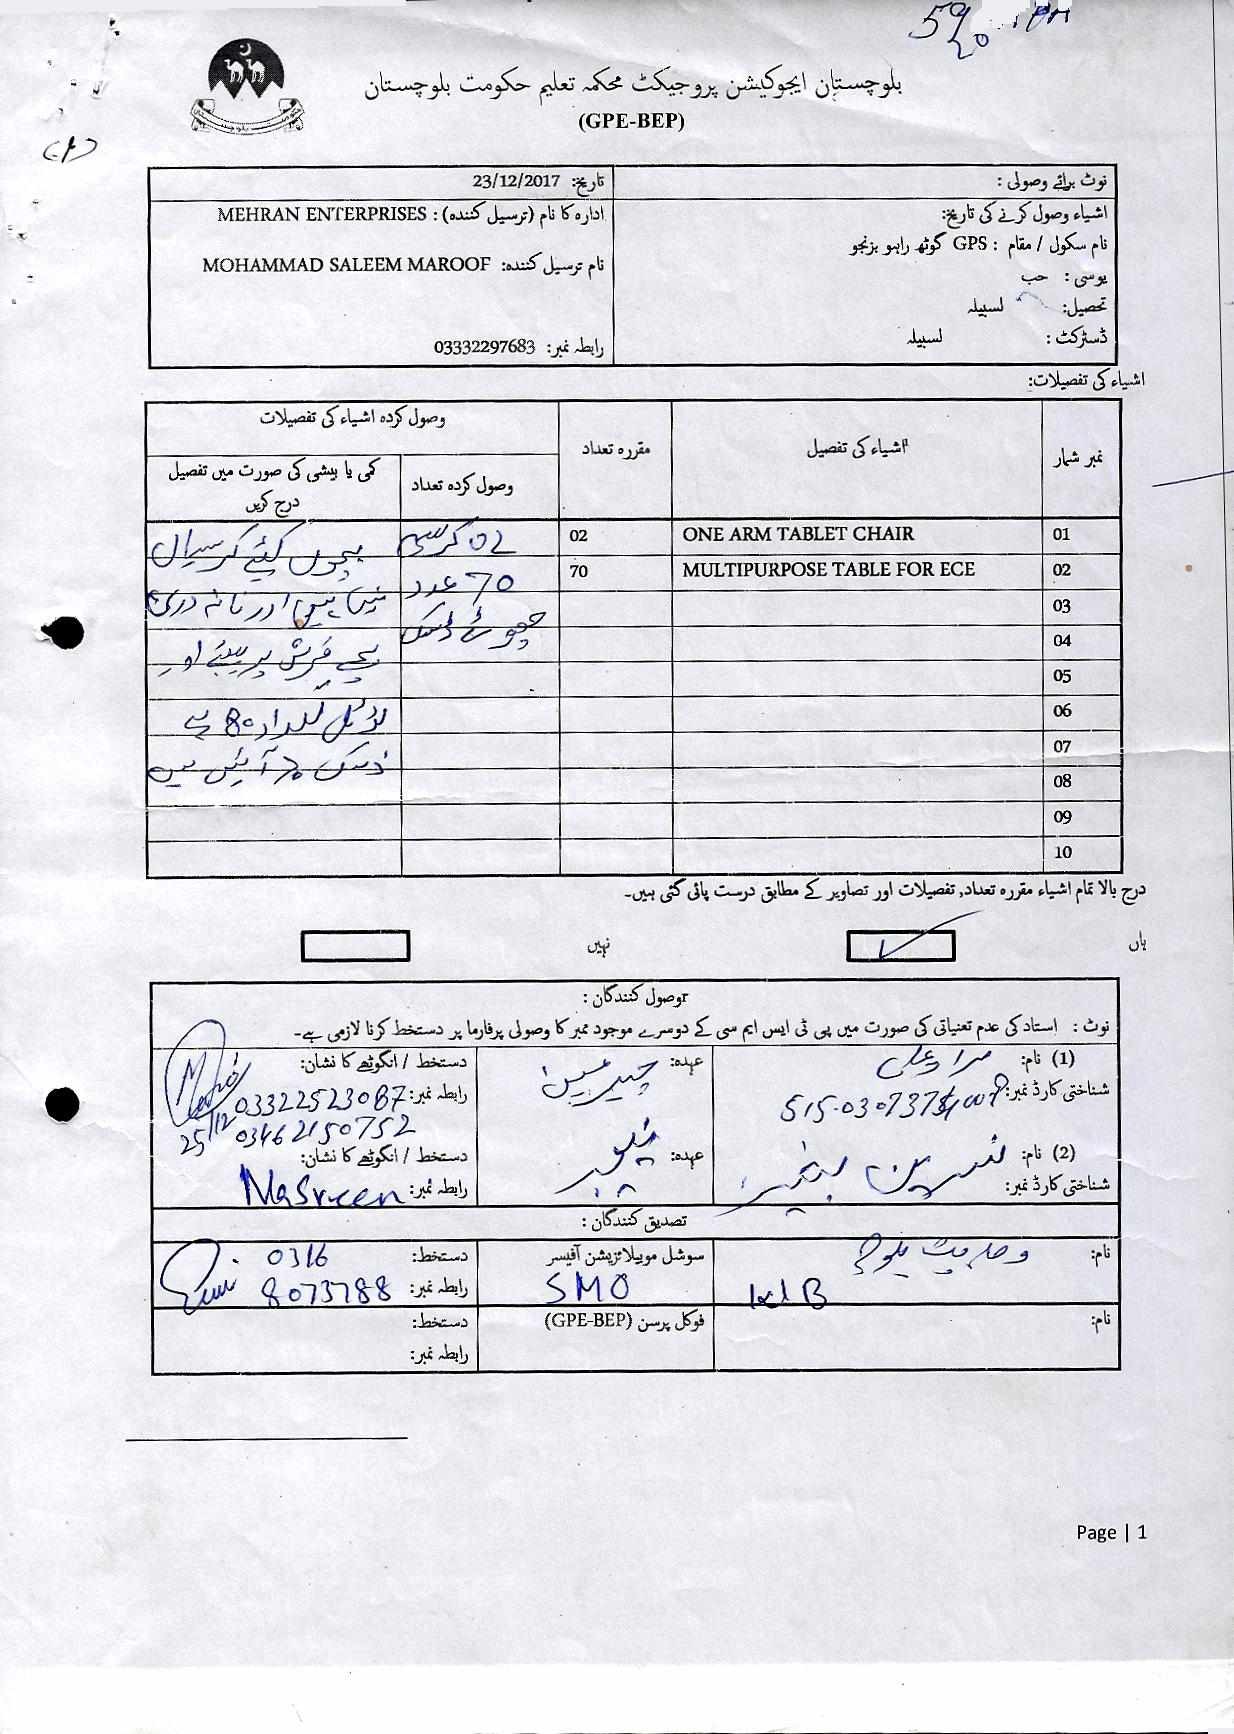 بلوچستان ایجوکیشن پروجیکٹ محکمہ تعلیم حکومت بلوچستان
(GPE-BEP)
نوٹ برائے وصولی :
تاریخ: 23/12/2017
اشیاء وصول کرنے کی تاریخ:
ادارہ کا نام (ترسیل کنندہ) : MEHRAN ENTERPRISES
نام سکول / مقام : GPS گوٹھ راہو بزنجو
نام ترسیل کنندہ: MOHAMMAD SALEEM MAROOF
یوسی : حب
تحصیل: لسبیلہ
ڈسٹرکٹ : لسبیلہ
رابطہ نمبر: 03332297683
اشیاء کی تفصیلات:
نمبر شمار اشیاء کی تفصیل مقررہ تعداد وصول کردہ اشیاء کی تفصیلات
وصول کردہ تعداد کمی یا بیشی کی صورت میں تفصیل درج کریں
01 ONE ARM TABLET CHAIR 02 02 کرسی
02 MULTIPURPOSE TABLE FOR ECE 70 70 عدد
03
04
05
06
07
08
09
10
بچوں کیلئے کرسیاں
بچے فرش پر بیٹھے اور
ٹوٹل تعداد 80 ہے
درج بالا تمام اشیاء مقررہ تعداد, تفصیلات اور تصاویر کے مطابق درست پائی گئی ہیں۔
ہاں نہیں
وصول کنندگان :
نوٹ : استاد کی عدم تعنیاتی کی صورت میں پی ٹی ایس ایم سی کے دوسرے موجود ممبر کا وصولی پرفارما پر دستخط کرنا لازمی ہے۔
(1) نام: مراد علی عہدہ: چیرمین دستخط / انگوٹھے کا نشان:
شناختی کارڈ نمبر: رابطہ نمبر: 03322523087
03462150752
25/12
(2) نام: نسرین عہدہ: ٹیچر دستخط / انگوٹھے کا نشان:
شناختی کارڈ نمبر: رابطہ نمبر: Nasreen
تصدیق کنندگان :
نام: بلوچ سوشل موبیلائزیشن آفیسر دستخط: 0316
SMO رابطہ نمبر: 8073788
نام: فوکل پرسن (GPE-BEP) دستخط:
رابطہ نمبر:
Page | 1